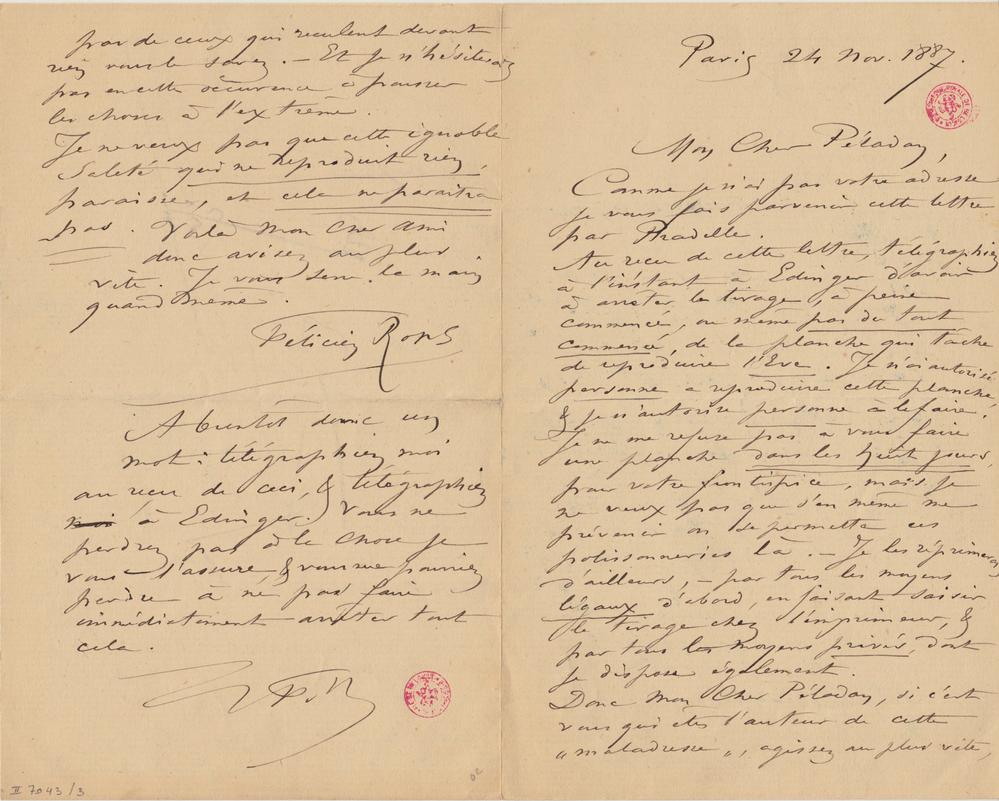 Paris 24 Nov. 1887.
Mon Cher Péladan,
Comme je n'ai pas votre adresse
je vous fais parvenir cette lettre
par
Au reçu de cette lettre, télégraphiez
à l'instant à Edinger d'avoir
à arrêter le tirage, à peine
commencé, ou même pas du tout
commencé, de la planche qui tâche
de reproduire l'Eve. Je n'ai autorisé
personne a reproduire cette planche,
& je n'autorise personne à le faire.
Je ne me refuse pas à vous faire
une planche dans les huit jours,
pour votre frontispice, mais je
ne veux pas que s'en même me
prévenir on se permette ces
polissonneries là. – Je les réprimerai
d'ailleurs, – par tous les moyens
légaux d'abord, en faisant saisir
le tirage chez l'imprimeur, &
par tous les moyens privés, dont
je dispose également.
Donc Mon Cher Péladan, si c'est
vous qui etes l'auteur de cette
„maladresse„, agissez au plus vite,
pas de ceux qui reculent devant
rien vous le savez. – Et je n'hésiterai
pas en cette occurence à pousser
les choses à l'extrême.
Je ne veux pas que cette ignoble
Saleté qui ne reproduit rien,
paraisse, et cela ne paraitra
pas. Voilà mon cher ami
donc avisez au plus
vite. Je vous serre la main
quand même.
Félicien Rops
A bientôt donc un
mot: télégraphiez moi
au reçu de ceci, & télégraphiez
à Edinger. Vous ne
perdrez pas à la chose je
vous l'assure & vous ne pourriez
perdre à ne pas faire
immédiatement arrêter tout
cela.
II 7043/3